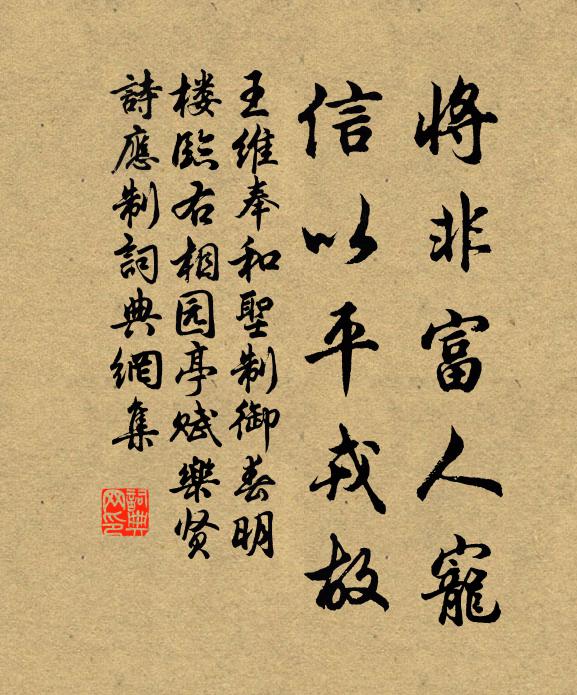 將非富人寵
信以平戎故
王維奉和聖制御春明
楼臨右相园亭赋樂贤
詩應制詞典網集
詞典网印